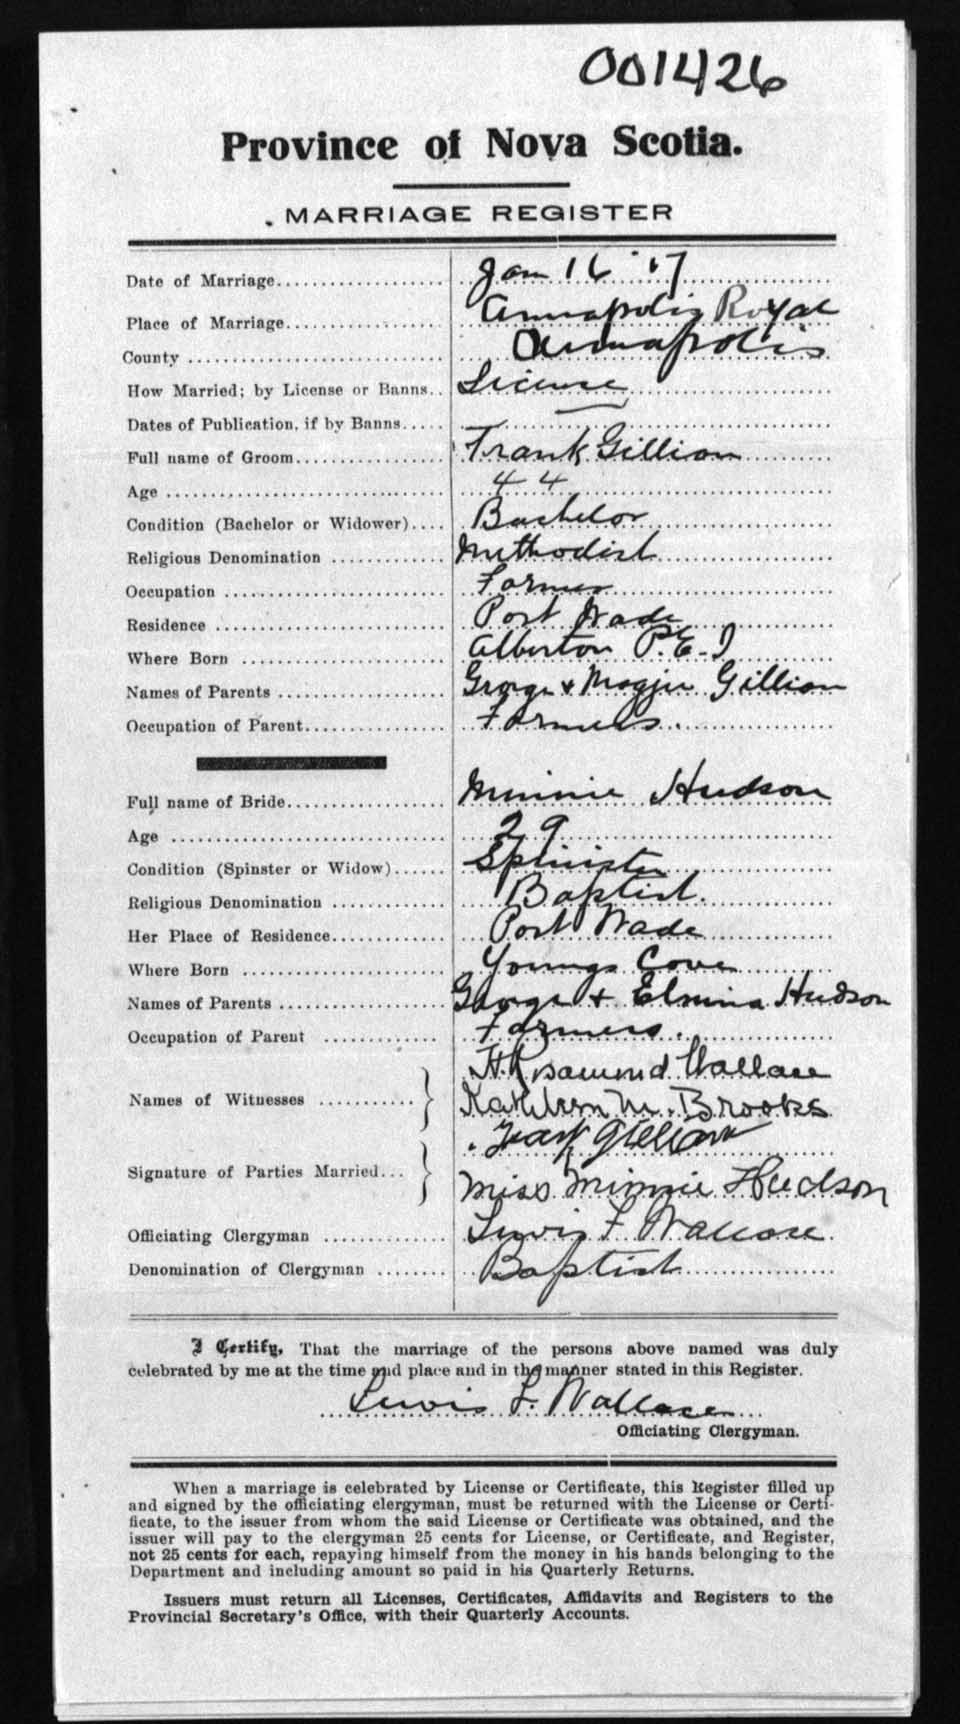 001426
Province of Nova Scotia.
MARRIAGE REGISTER
Date of Marriage Jan 16 '17
Place of Marriage Annapolis Royal
County Annapolis
How Married; by License or Banns License
Dates of Publication, if by Banns
Full name of Groom Frank Gillian
Age 44
Condition (Bachelor or Widower) Bachelor
Religious Denomination Methodist
Occupation Farmer
Residence Port Wade
Where Born Alberton P.E.I
Names of Parents George & Maggie Gillian
Occupation of Parent Farmers.
Full name of Bride Minnie Hudson
Age 29
Condition (Spinster or Widow) Spinister
Religious Denomination Baptist.
Her Place of Residence Port Wade
Where Born Youngs Cove
Names of Parents George + Elmina Hudson
Occupation of Parent Farmers.
H. Rosamond Wallace
Names of Witnesses Kathleen M. Brooks
Frank Gillian
Signature of Parties Married Miss Minnie Hudson
Officiating Clergyman Lewis F. Wallace.
Denomination of Clergyman Baptist
I Certify, That the marriage of the persons above named was duly
celebrated by me at the time and place and in the manner stated in this Register.
Lewis F. Wallace
Officiating Clergyman.
When a marriage is celebrated by License or Certificate, this Register filled up
and signed by the officiating clergyman, must be returned with the License or Certi-
ficate, to the issuer from whom the said License or Certificate was obtained, and the
issuer will pay to the clergyman 25 cents for License, or Certificate, and Register,
not 25 cents for each, repaying himself from the money in his hands belonging to the
Department and including amount so paid in his Quarterly Returns.
Issuers must return all Licenses, Certificates, Affidavits and Registers to the
Provincial Secretary's Office, with their Quarterly Accounts.